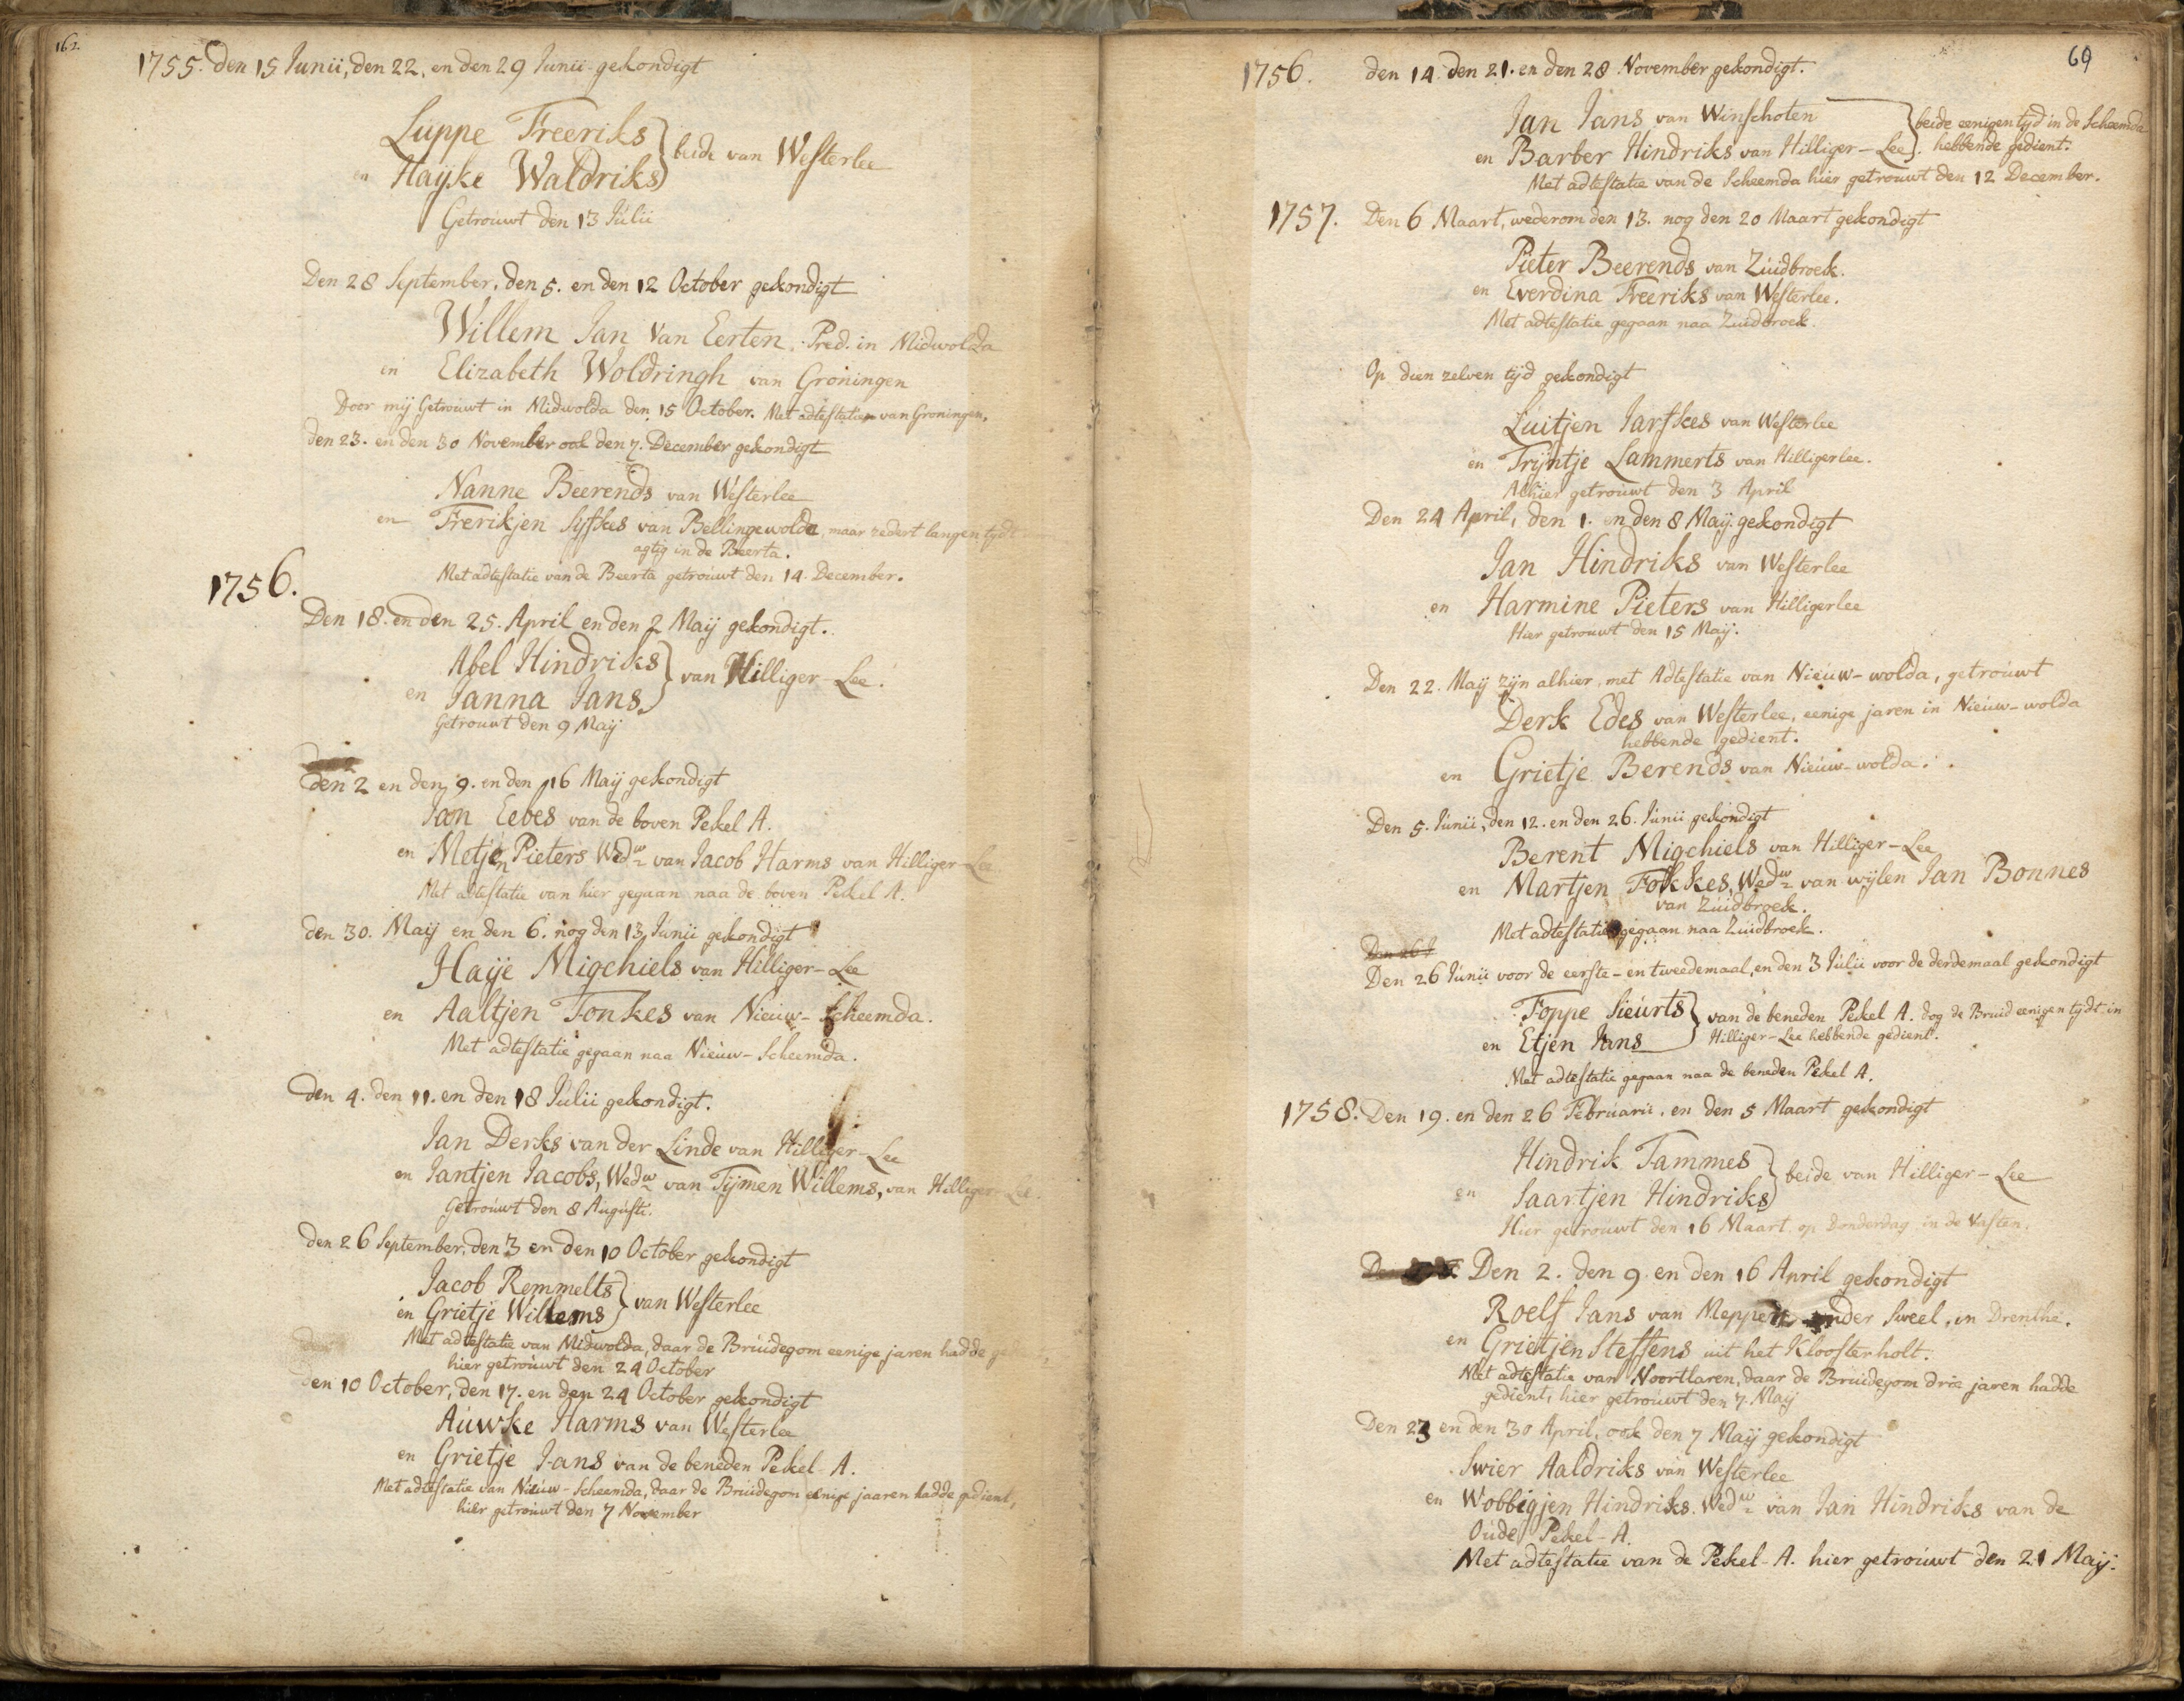 162.
1755. den 15 Junii, den 22, en den 29 Junii gekondigt
Luppe Freeriks
en Hayke Waldriks } beide van Westerlee
Getrouwt den 13 Julii
Den 28 September, den 5. en den 12 October gekondigt
Willem Jan Van Eerten, Pred. in Midwolda
en Elizabeth Woldringh van Groningen
Door mij Getrouwt in Midwolda den 15 October. Met adtestatie van Groningen.
den 23. en den 30 November ook den 7. December gekondigt
Nanne Beerends van Westerlee
en Frerikjen Syfkes van Bellingewolda, maar zedert langen tydt
agtig in de Beerta.
Met adtestatie van de Beerta getrouwt den 14 December.
1756.
Den 18. en den 25. April en den 2 Maij gekondigt.
Abel Hindriks
en Janna Jans } van Hilliger-Lee.
Getrouwt den 9 Maij
den 2 en den 9. en den 16 Maij gekondigt
Jan Eebes van de boven Pekel A.
en Metjen Pieters Wedw van Jacob Harms van Hilliger-Lee
Met adtestatie van hier gegaan naa de boven Pekel A.
den 30. Maij en den 6. nog den 13 Junii gekondigt
Haije Migchiels van Hilliger-Lee
en Aaltjen Fonkes van Nieuw-Scheemda.
Met adtestatie gegaan naa Nieuw-Scheemda.
den 4. den 11. en den 18 Julii gekondigt.
Jan Derks van der Linde van Hilliger-Lee
en Jantjen Jacobs, Wedw van Tijmen Willems, van Hilliger-Lee.
Getrouwt den 8 Augusti.
den 26 September, den 3 en den 10 October gekondigt
Jacob Remmelts
en Grietje Willems } van Westerlee
Met adtestatie van Midwolda, daar de Bruidegom eenige jaren hadde
hier getrouwt den 24 October
den 10 October, den 17. en den 24 October gekondigt
Auwke Harms van Westerlee
en Grietje Jans van de beneden Pekel-A.
Met adtestatie van Nieuw-Scheemda, daar de Bruidegom eenige jaaren hadde gedient,
hier getrouwt den 7 November
69
1756. den 14. den 21. en den 28 November gekondigt.
Jan Jans van Winschoten
en Barber Hindriks van Hilliger-Lee } beide eenigen tijd in de Scheemda
hebbende gedient.
Met adtestatie van de Scheemda hier getrouwt den 12 December.
1757. Den 6 Maart, wederom den 13. nog den 20 Maart gekondigt
Pieter Beerends van Zuidbroek.
en Everdina Freeriks van Westerlee.
Met adtestatie gegaan naa Zuidbroek.
Op dien zelven tijd gekondigt
Luitjen Jarfkes van Westerlee
en Trijntje Lammerts van Hilligerlee.
Alhier getrouwt den 3 April
Den 24 April, den 1. en den 8 Maij gekondigt
Jan Hindriks van Westerlee
en Harmine Pieters van Hilligerlee
Hier getrouwt den 15 Maij.
Den 22. Maij zijn alhier, met Adtestatie van Nieuw-wolda, getrouwt
Derk Edes van Westerlee, eenige jaren in Nieuw-wolda
hebbende gedient.
en Grietje Berends van Nieuw-wolda.
Den 5. Junii, den 12. en den 26. Junii gekondigt
Berent Migchiels van Hilliger-Lee
en Martjen Fokkes, Wedw van wijlen Jan Bonnes
van Zuidbroek.
Met adtestatie gegaan naa Zuidbroek.
Den 26 J
Den 26 Junii voor de eerste- en tweedemaal, en den 3 Julii voor de derdemaal gekondigt
Foppe Sieurts
en Etjen Jans } van de beneden Pekel A. dog de Bruid eenigen tijdt in
Hilliger-Lee hebbende gedient.
Met adtestatie gegaan naa de beneden Pekel A.
1758. Den 19. en den 26 Februarii, en den 5 Maart gekondigt
Hindrik Tammes
en Saartjen Hindriks } beide van Hilliger-Lee
Hier getrouwt den 16 Maart op Donderdag in de Vasten.
Den 2. den 9 en den 16 April gekondigt
Roelf Jans van Meppen, onder Sweel, in Drenthe.
en Grietjen Steffens uit het Kloosterholt.
Met adtestatie van Noortlaren, daar de Bruidegom drie jaren hadde
gedient, hier getrouwt den 7 Maij
Den 23 en den 30 April, ook den 7 Maij gekondigt
Swier Aaldriks van Westerlee
en Wobbigjen Hindriks. Wedw van Jan Hindriks van de
Oude Pekel-A.
Met adtestatie van de Pekel-A. hier getrouwt den 21 Maij.